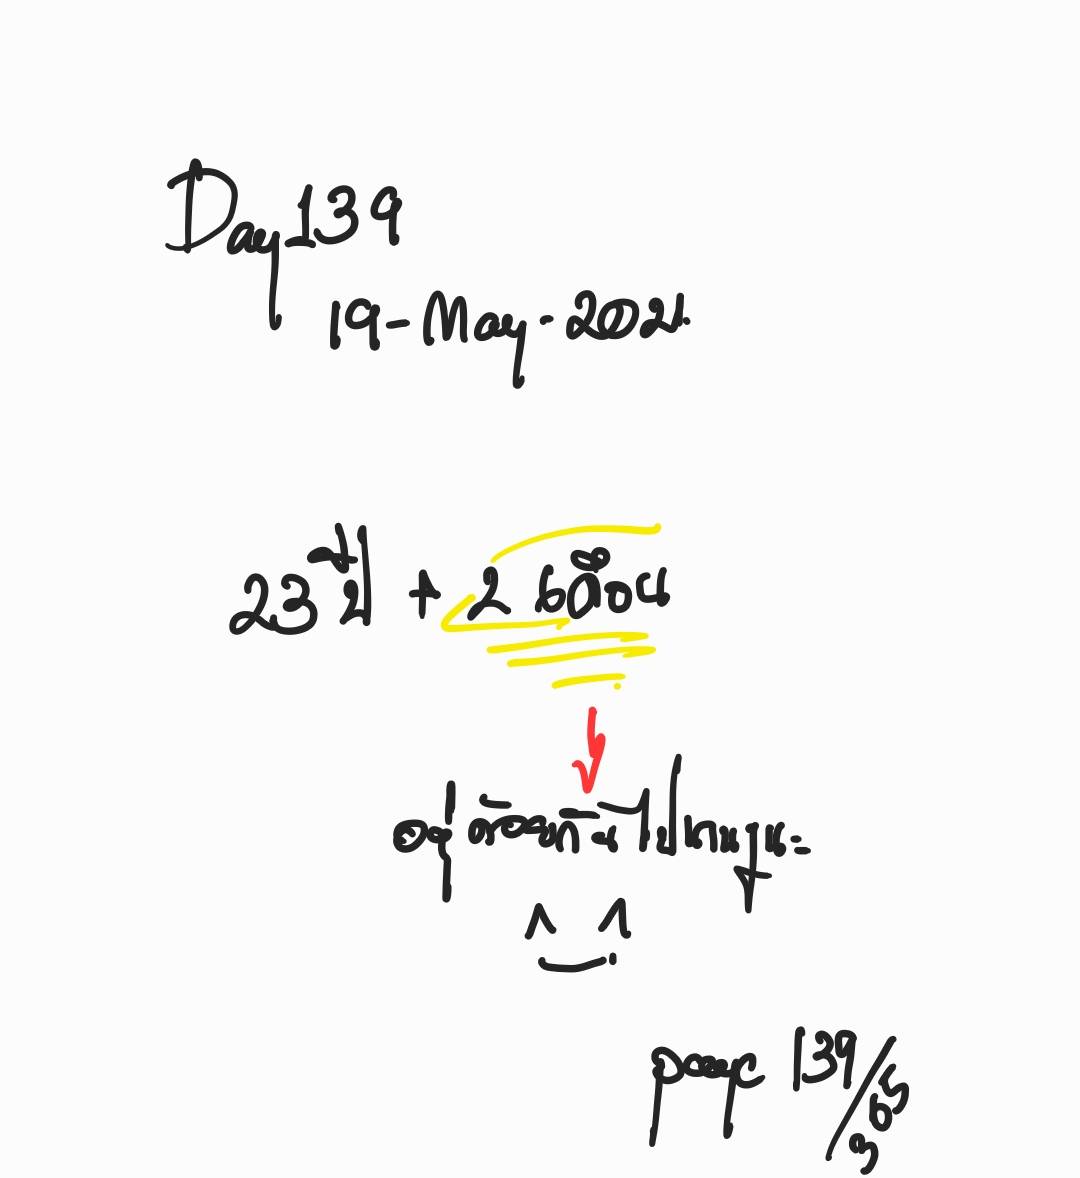 Day 139
19-May-2021.
23 ปี + 2 เดือน
อยู่ด้วยกันไปนานๆนะ
page 139/365